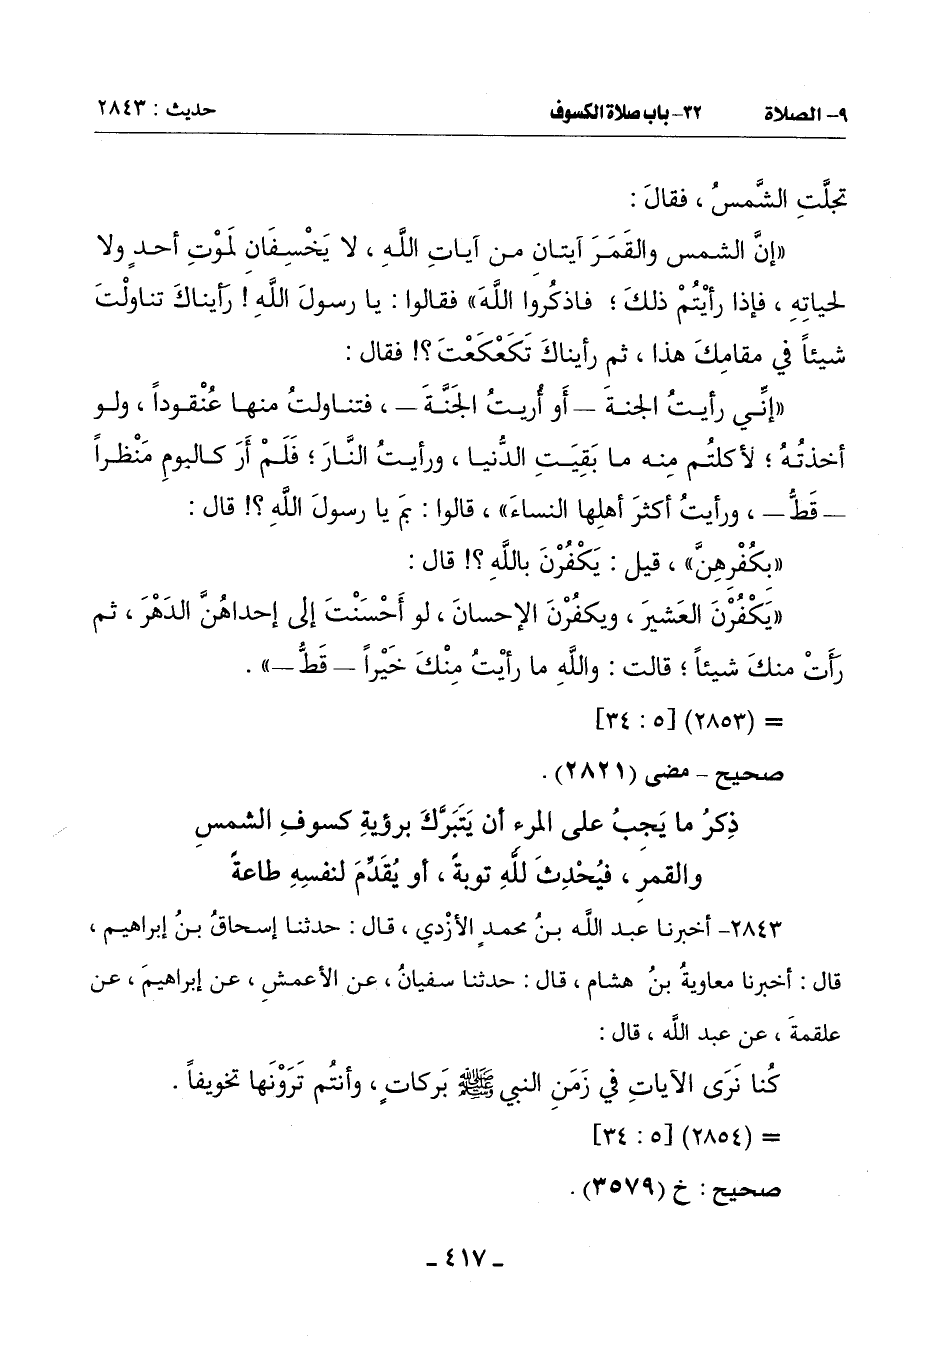 ٩- الصلاة ٣٢- باب صلاة الكسوف حديث : ٢٨٤٣
تجلَّتِ الشَّمسُ ، فقالَ :
«إنَّ الشمس والقَمَرَ آيتان من آياتِ اللَّهِ ، لا يَخْسِفَان لمَوْتِ أحدٍ ولا
لحياتِهِ ، فإذا رأيْتُمْ ذلكَ ؛ فاذكُروا اللَّهَ» فقالوا : يا رسولَ اللَّه ! رأيناكَ تناولْتَ
شيئاً في مقامِكَ هذا ، ثم رأيناكَ تَكَعْكَعْتَ ؟! فقال :
«إنِّي رأيتُ الجنةَ – أو أُريتُ الجَنَّةَ – ، فتناولتُ منها عُنْقوداً ، ولو
أخذتُهُ ؛ لأكلتُم مِنه ما بَقِيَتِ الدُّنيا ، ورأيتُ النَّارَ ؛ فَلَمْ أَرَ كاليومِ مَنْظراً
– قَطُّ – ، ورأيتُ أكثرَ أهلِها النساءَ» ، قالوا : بمَ يا رسولَ اللَّهِ ؟! قال :
«بكُفْرِهِنَّ» ، قيل : يَكْفُرْنَ باللَّهِ ؟! قال :
«يَكْفُرْنَ العَشيرَ ، ويكفُرْنَ الإحسانَ ، لو أَحْسَنْتَ إلى إحداهُنَّ الدَهْرَ ، ثم
رَأَتْ منكَ شيئاً ؛ قالت : واللَّهِ ما رأيْتُ مِنْكَ خَيْراً – قَطُّ –» .
= (٢٨٥٣) [٥ : ٣٤]
صحيح - مضى (٢٨٢١) .
ذِكرُ ما يَجِبُ على المرءِ أن يَتَبَرَّكَ برؤيةِ كسوفِ الشمسِ
والقمرِ ، فيُحْدِثَ للَّهِ توبةً ، أو يُقَدِّمَ لنفسِهِ طاعةً
٢٨٤٣- أخبرنا عبد اللَّه بنُ محمدٍ الأزْدي ، قال : حدثنا إسحاقُ بنُ إبراهيم ،
قال : أخبرنا معاويةُ بنُ هشامٍ ، قال : حدثنا سفيانُ ، عن الأعمشِ ، عن إبراهيمَ ، عن
علقمةَ ، عن عبد اللَّه ، قال :
كُنا نَرَى الآياتِ في زَمَنِ النبي ﷺ بَركاتٍ ، وأنتُم تَرَوْنَها تخويفاً .
= (٢٨٥٤) [٥ : ٣٤]
صحيح : خ (٣٥٧٩) .
- ٤١٧ -